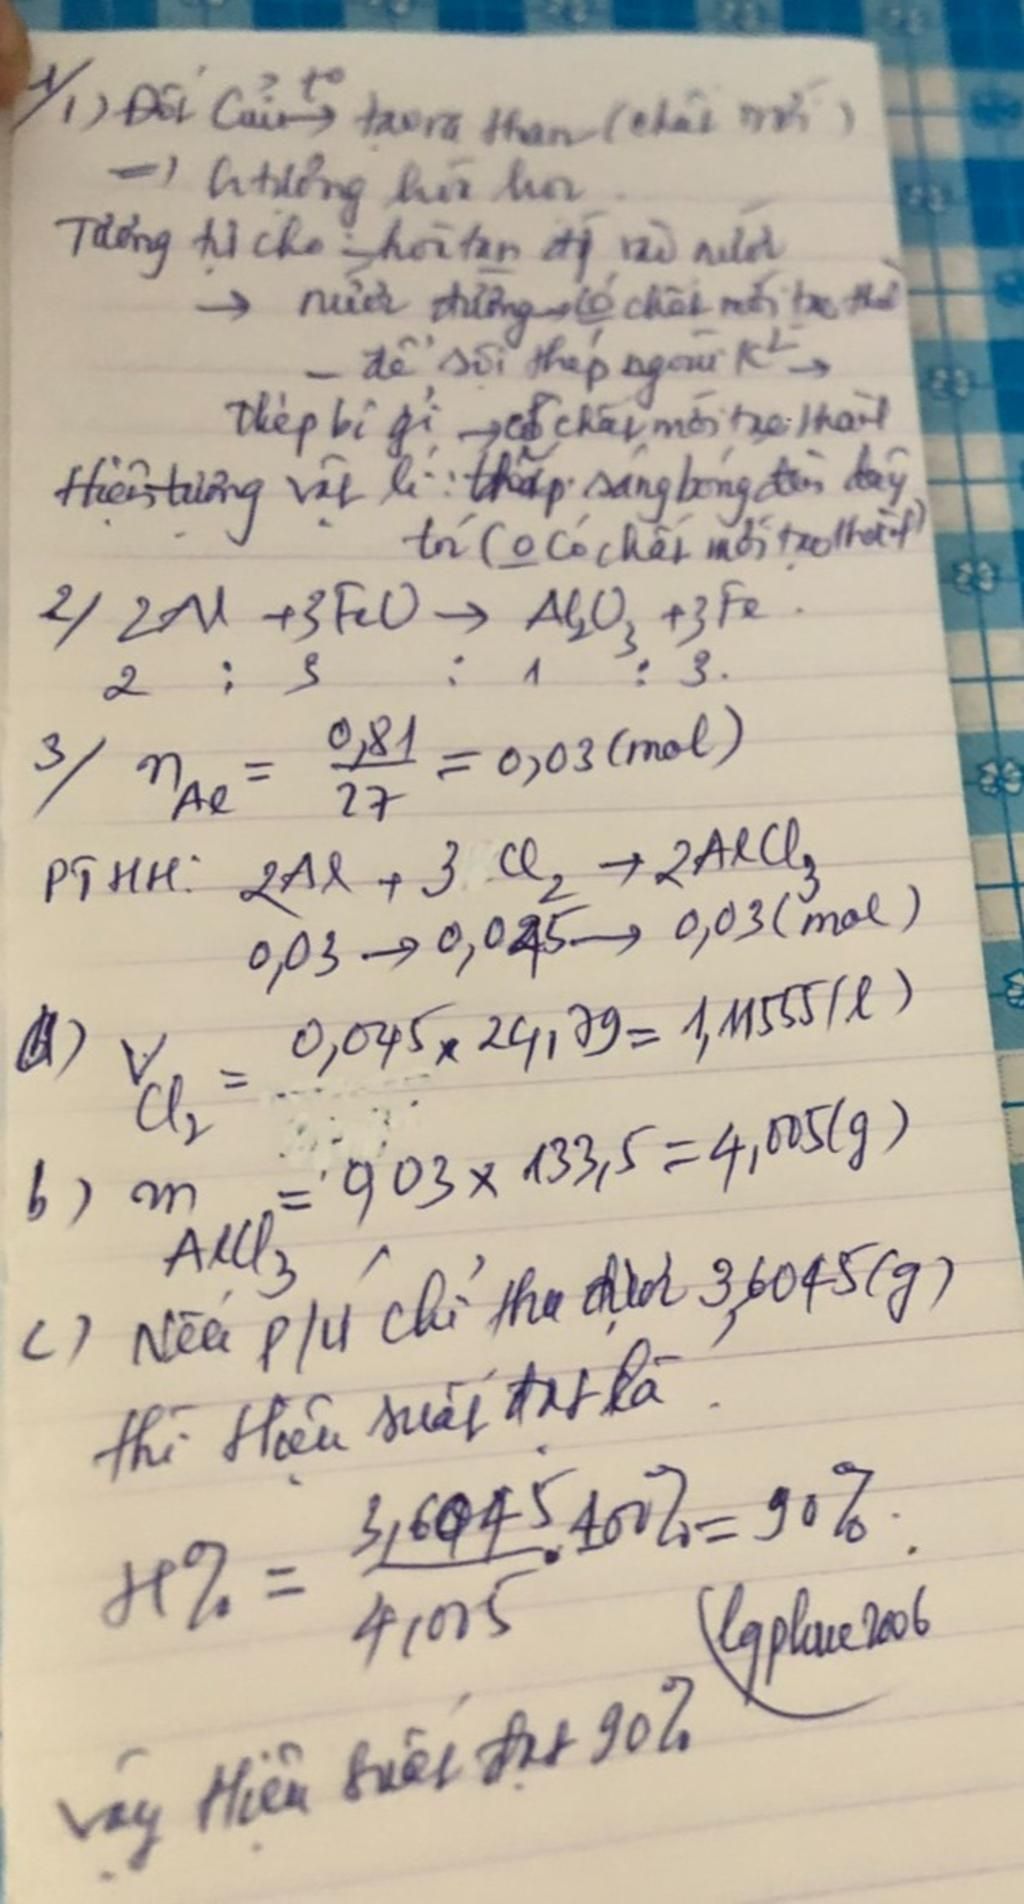 1/1) Đốt Củi t° → tạo ra than (chất mới)
=) h tượng hóa học.
Tương tự cho: - hòa tan đg vào nước
→ nước đường → có chất mới tạo thà
- để sợi thép ngoài K² →
thép bị gỉ → có chất mới tạo thành
Hiện tượng vật lí: thắp sáng bóng đèn dây
tóc (o có chất mới tạo thành)
2/ 2Al + 3FeO → Al₂O₃ + 3Fe.
2 : 3 : 1 : 3.
3/ n Al = 0,81 / 27 = 0,03 (mol)
PTHH: 2Al + 3 Cl₂ → 2AlCl₃
0,03 → 0,045 → 0,03 (mol)
a) V Cl₂ = 0,045 × 24,79 = 1,11555 (l)
b) m AlCl₃ = 0,03 × 133,5 = 4,005 (g)
c) Nếu P/Ư chỉ thu được 3,6045 (g)
thì Hiệu suất đạt là.
H% = 3,6045 / 4,005 . 100% = 90%.
lgphuc2006
Vậy Hiệu suất đạt 90%